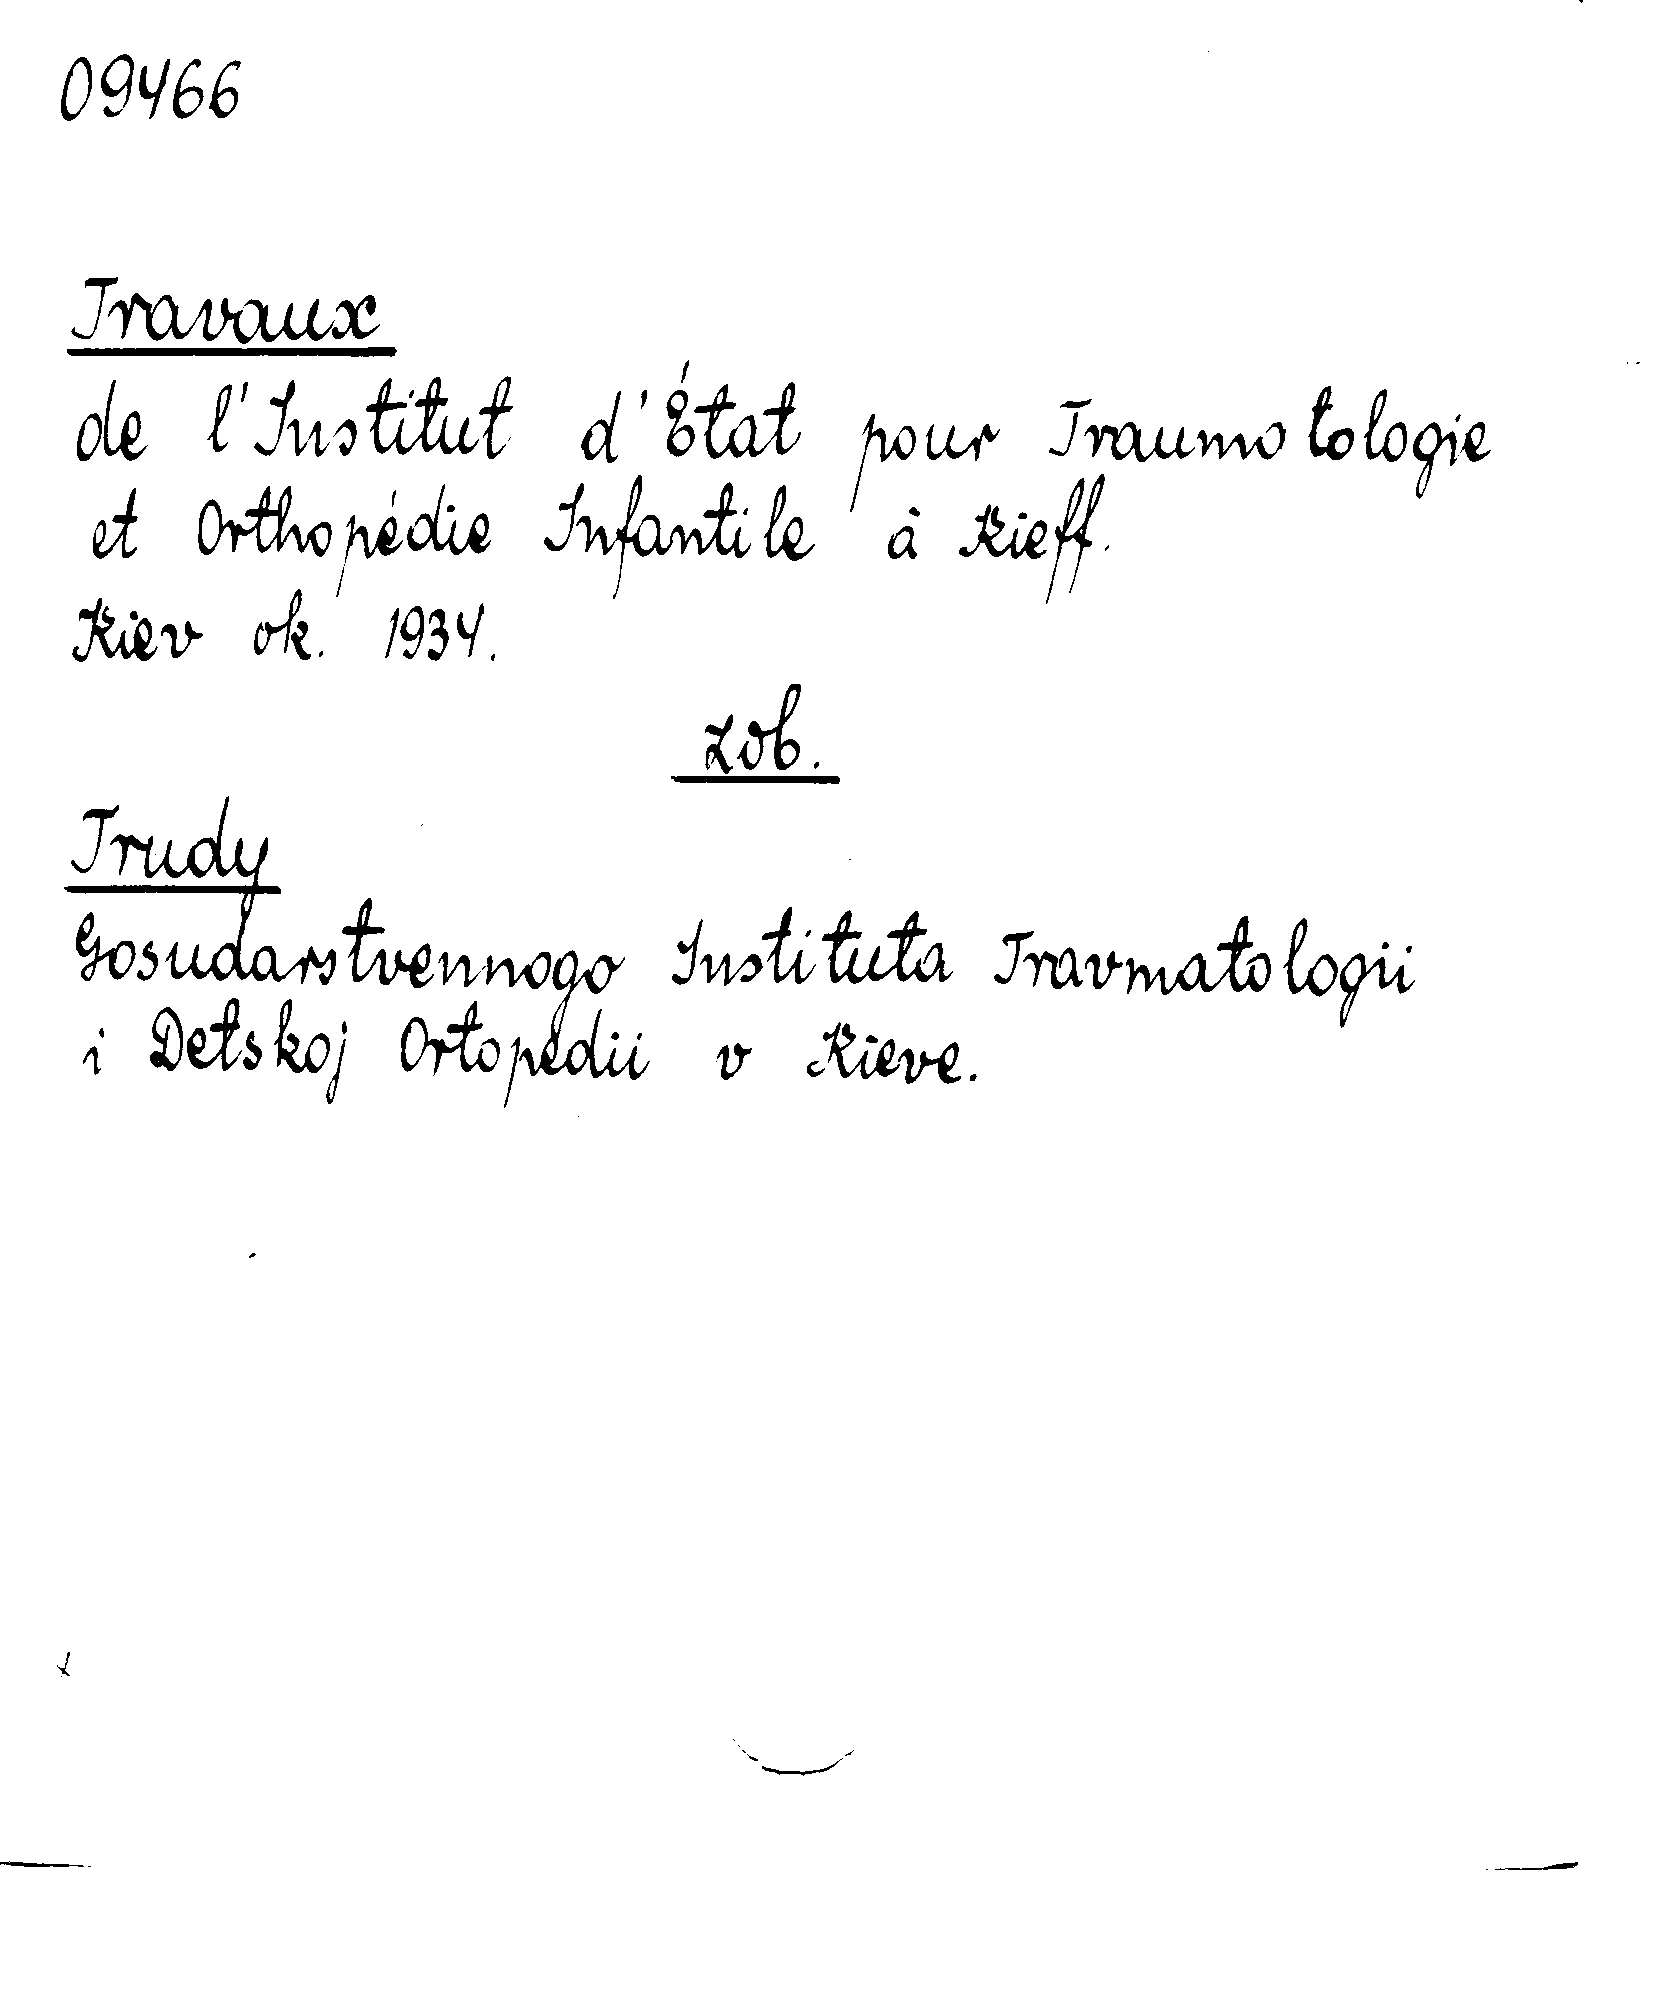 09466
Travaux
de l'Institut d'État pour Traumatologie
et Orthopédie Infantile à Kieff.
Kiev ok. 1934.
zob.
Trudy
Gosudarstvennogo Instituta Travmatologii
i Detskoj Ortopedii v Kieve.